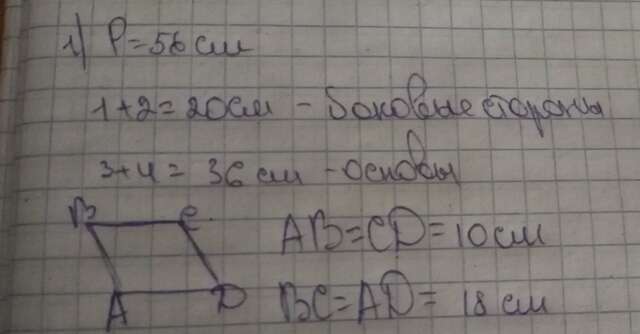 1) P=56 см
1+2=20см - Боковые стороны
3+4= 36 см - основы
B C
AB=CD=10 см
A D
BC=AD= 18 см